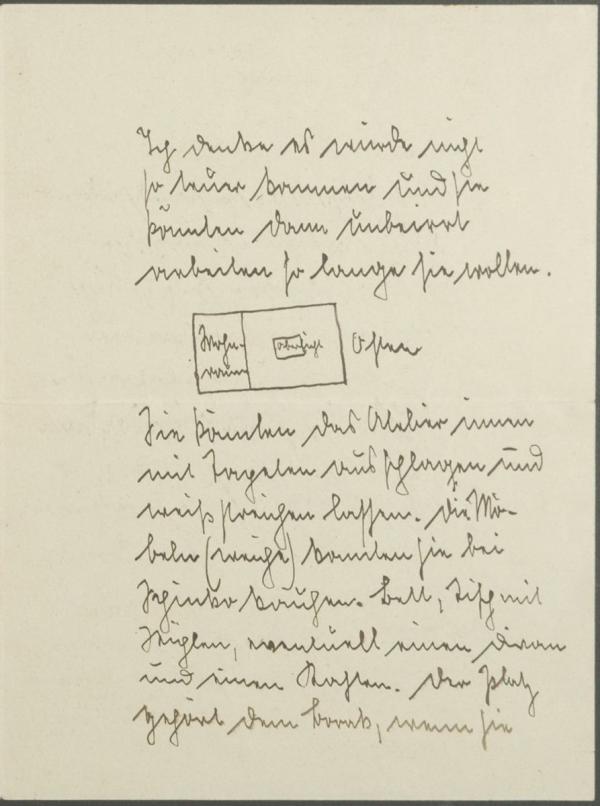 Ich denke es würde nicht
so teuer kommen und sie
könnten dann unbeirrt
arbeiten so lange sie wollen.
Wohn-
raum
Oberlicht
Osten
Sie könnten das Atelier innen
mit Tapeten ausschlagen und
weiß streichen lassen. Die Mö-
beln (weiche) könnten sie bei
kaufen. Bett, Tisch mit
einen Divan
und einen Kasten. Der Platz
gehört dem wenn sie